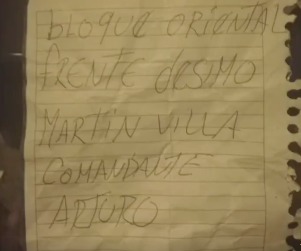 bloque oriental
frente desimo
Martin Villa
Comandante
Arturo